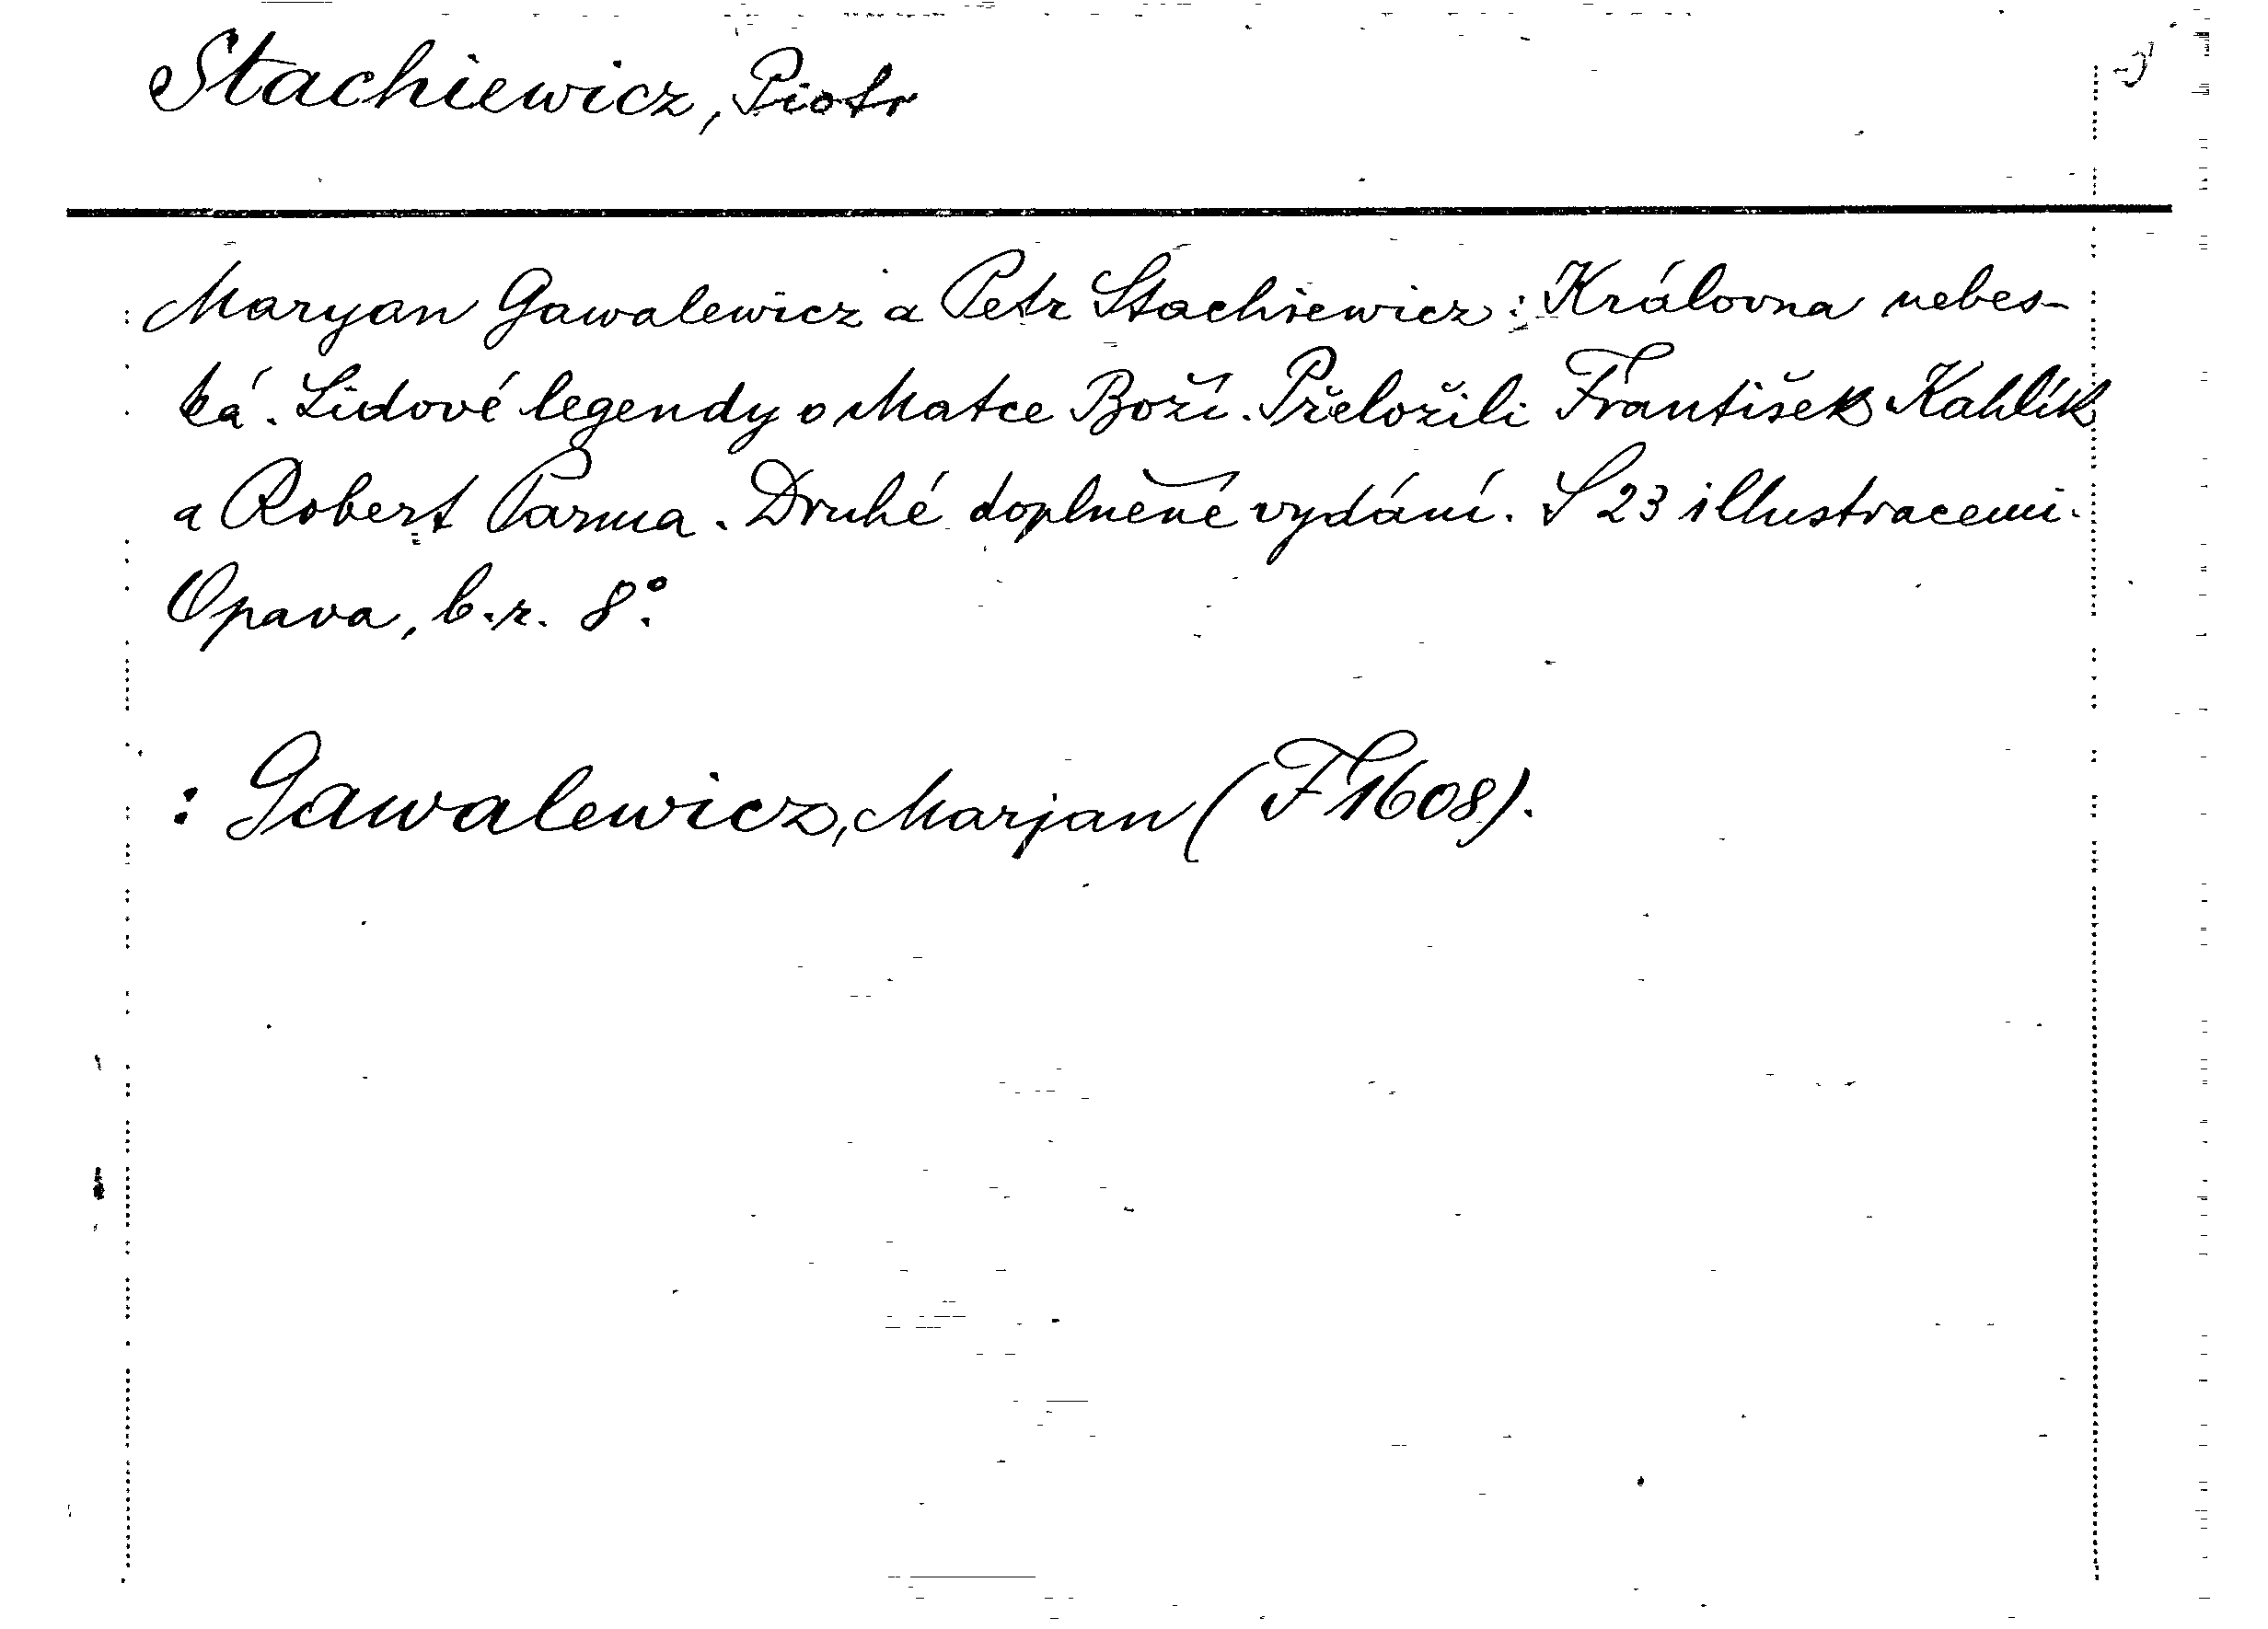 Stachiewicz, Piotr
Maryan Gawalewicz a Petr Stachiewicz: Královna nebes-
ká. Lidové legendy o Matce Boží. Přeložili František Kahlík
a Robert Parma. Druhé doplněné vydání. S 23 illustracemi.
Opava, b.r. 8°.
: Gawalewicz, Marjan (F 1608).